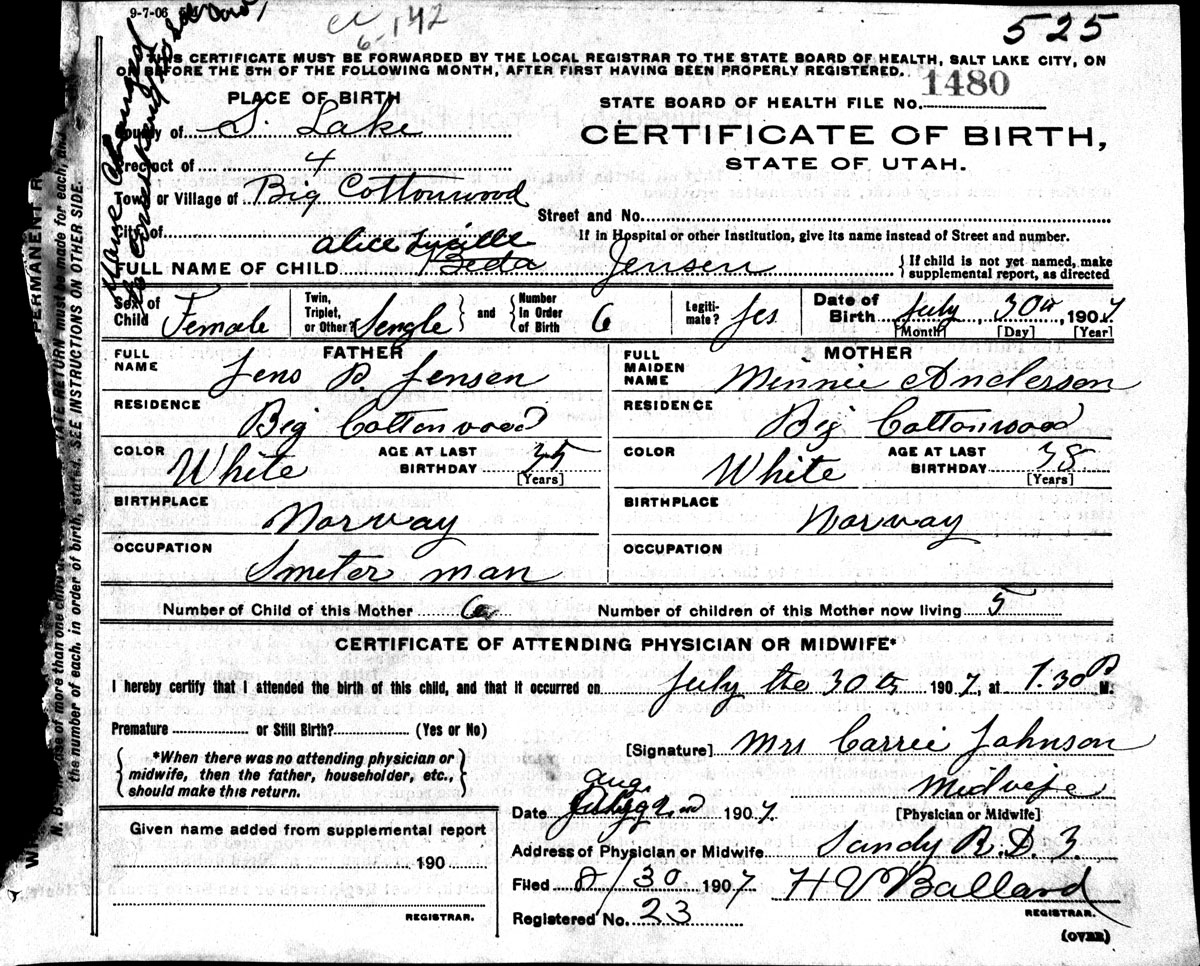 9-7-06
6-142
525
THIS CERTIFICATE MUST BE FORWARDED BY THE LOCAL REGISTRAR TO THE STATE BOARD OF HEALTH, SALT LAKE CITY, ON
OR BEFORE THE 5TH OF THE FOLLOWING MONTH, AFTER FIRST HAVING BEEN PROPERLY REGISTERED.
PLACE OF BIRTH
STATE BOARD OF HEALTH FILE No. 1480
County of S. Lake
CERTIFICATE OF BIRTH,
STATE OF UTAH.
Precinct of 4
Town or Village of Big Cottonwood
Street and No.
City of
If in Hospital or other Institution, give its name instead of Street and number.
Alice Lucille
FULL NAME OF CHILD Beda Jensen
If child is not yet named, make supplemental report, as directed
Name Changed
PERMANENT R
N. B.—In case of more than one child
RATE RETURN must be made for each, and
the number of each, in order of birth, stated. SEE INSTRUCTIONS ON OTHER SIDE.
Sex of Child Female
Twin, Triplet, or Other? Sengle and Number In Order of Birth 6
Legitimate? yes
Date of Birth July 30th, 1907
[Month] [Day] [Year]
FATHER
FULL NAME Jens P. Jensen
RESIDENCE Big Cottonwood
COLOR White AGE AT LAST BIRTHDAY 35
[Years]
BIRTHPLACE Norway
OCCUPATION Smeter man
MOTHER
FULL MAIDEN NAME Minnie Anderson
RESIDENCE Big Cottonwood
COLOR White AGE AT LAST BIRTHDAY 38
[Years]
BIRTHPLACE Norway
OCCUPATION
Number of Child of this Mother 6
Number of children of this Mother now living 5
CERTIFICATE OF ATTENDING PHYSICIAN OR MIDWIFE*
I hereby certify that I attended the birth of this child, and that it occurred on July the 30th 1907, at 1.30 P M.
Premature or Still Birth? (Yes or No)
*When there was no attending physician or
midwife, then the father, householder, etc.,
should make this return.
[Signature] Mrs Carrie Johnson
Midwife
[Physician or Midwife]
Aug.
Date 2nd 1907
Address of Physician or Midwife Sandy R.D. 3.
Filed 8/30 1907 H V Ballard
REGISTRAR.
Registered No. 23
Given name added from supplemental report
190
REGISTRAR.
(OVER)